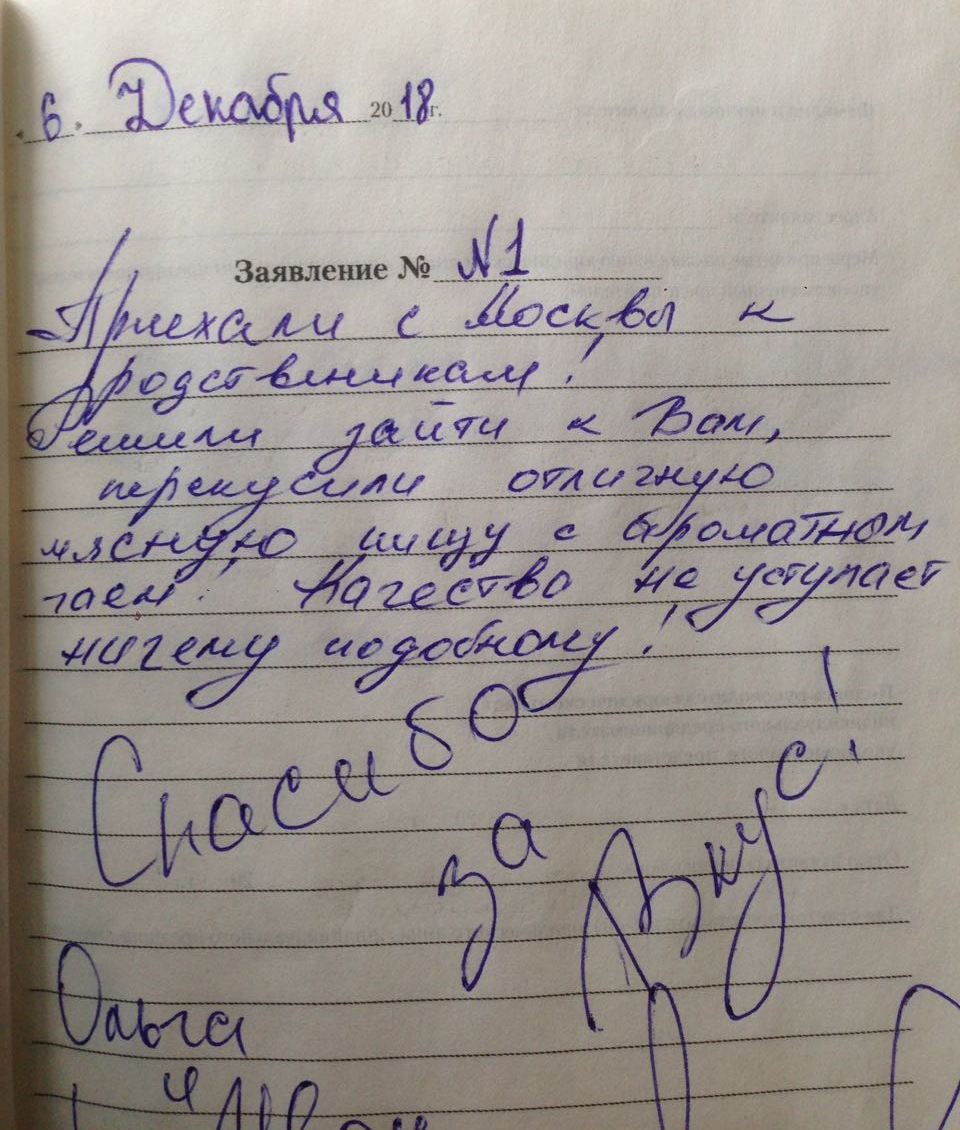 6. Декабря 2018г.
Заявление № N1
Приехали с Москвы к
родственикам!
Решили зайти к Вам,
перекусили отличную
мясную пищу с ароматном
чаем! Качество не уступает
ничему подобному!
Спасибо
за Вкус!
Ольга